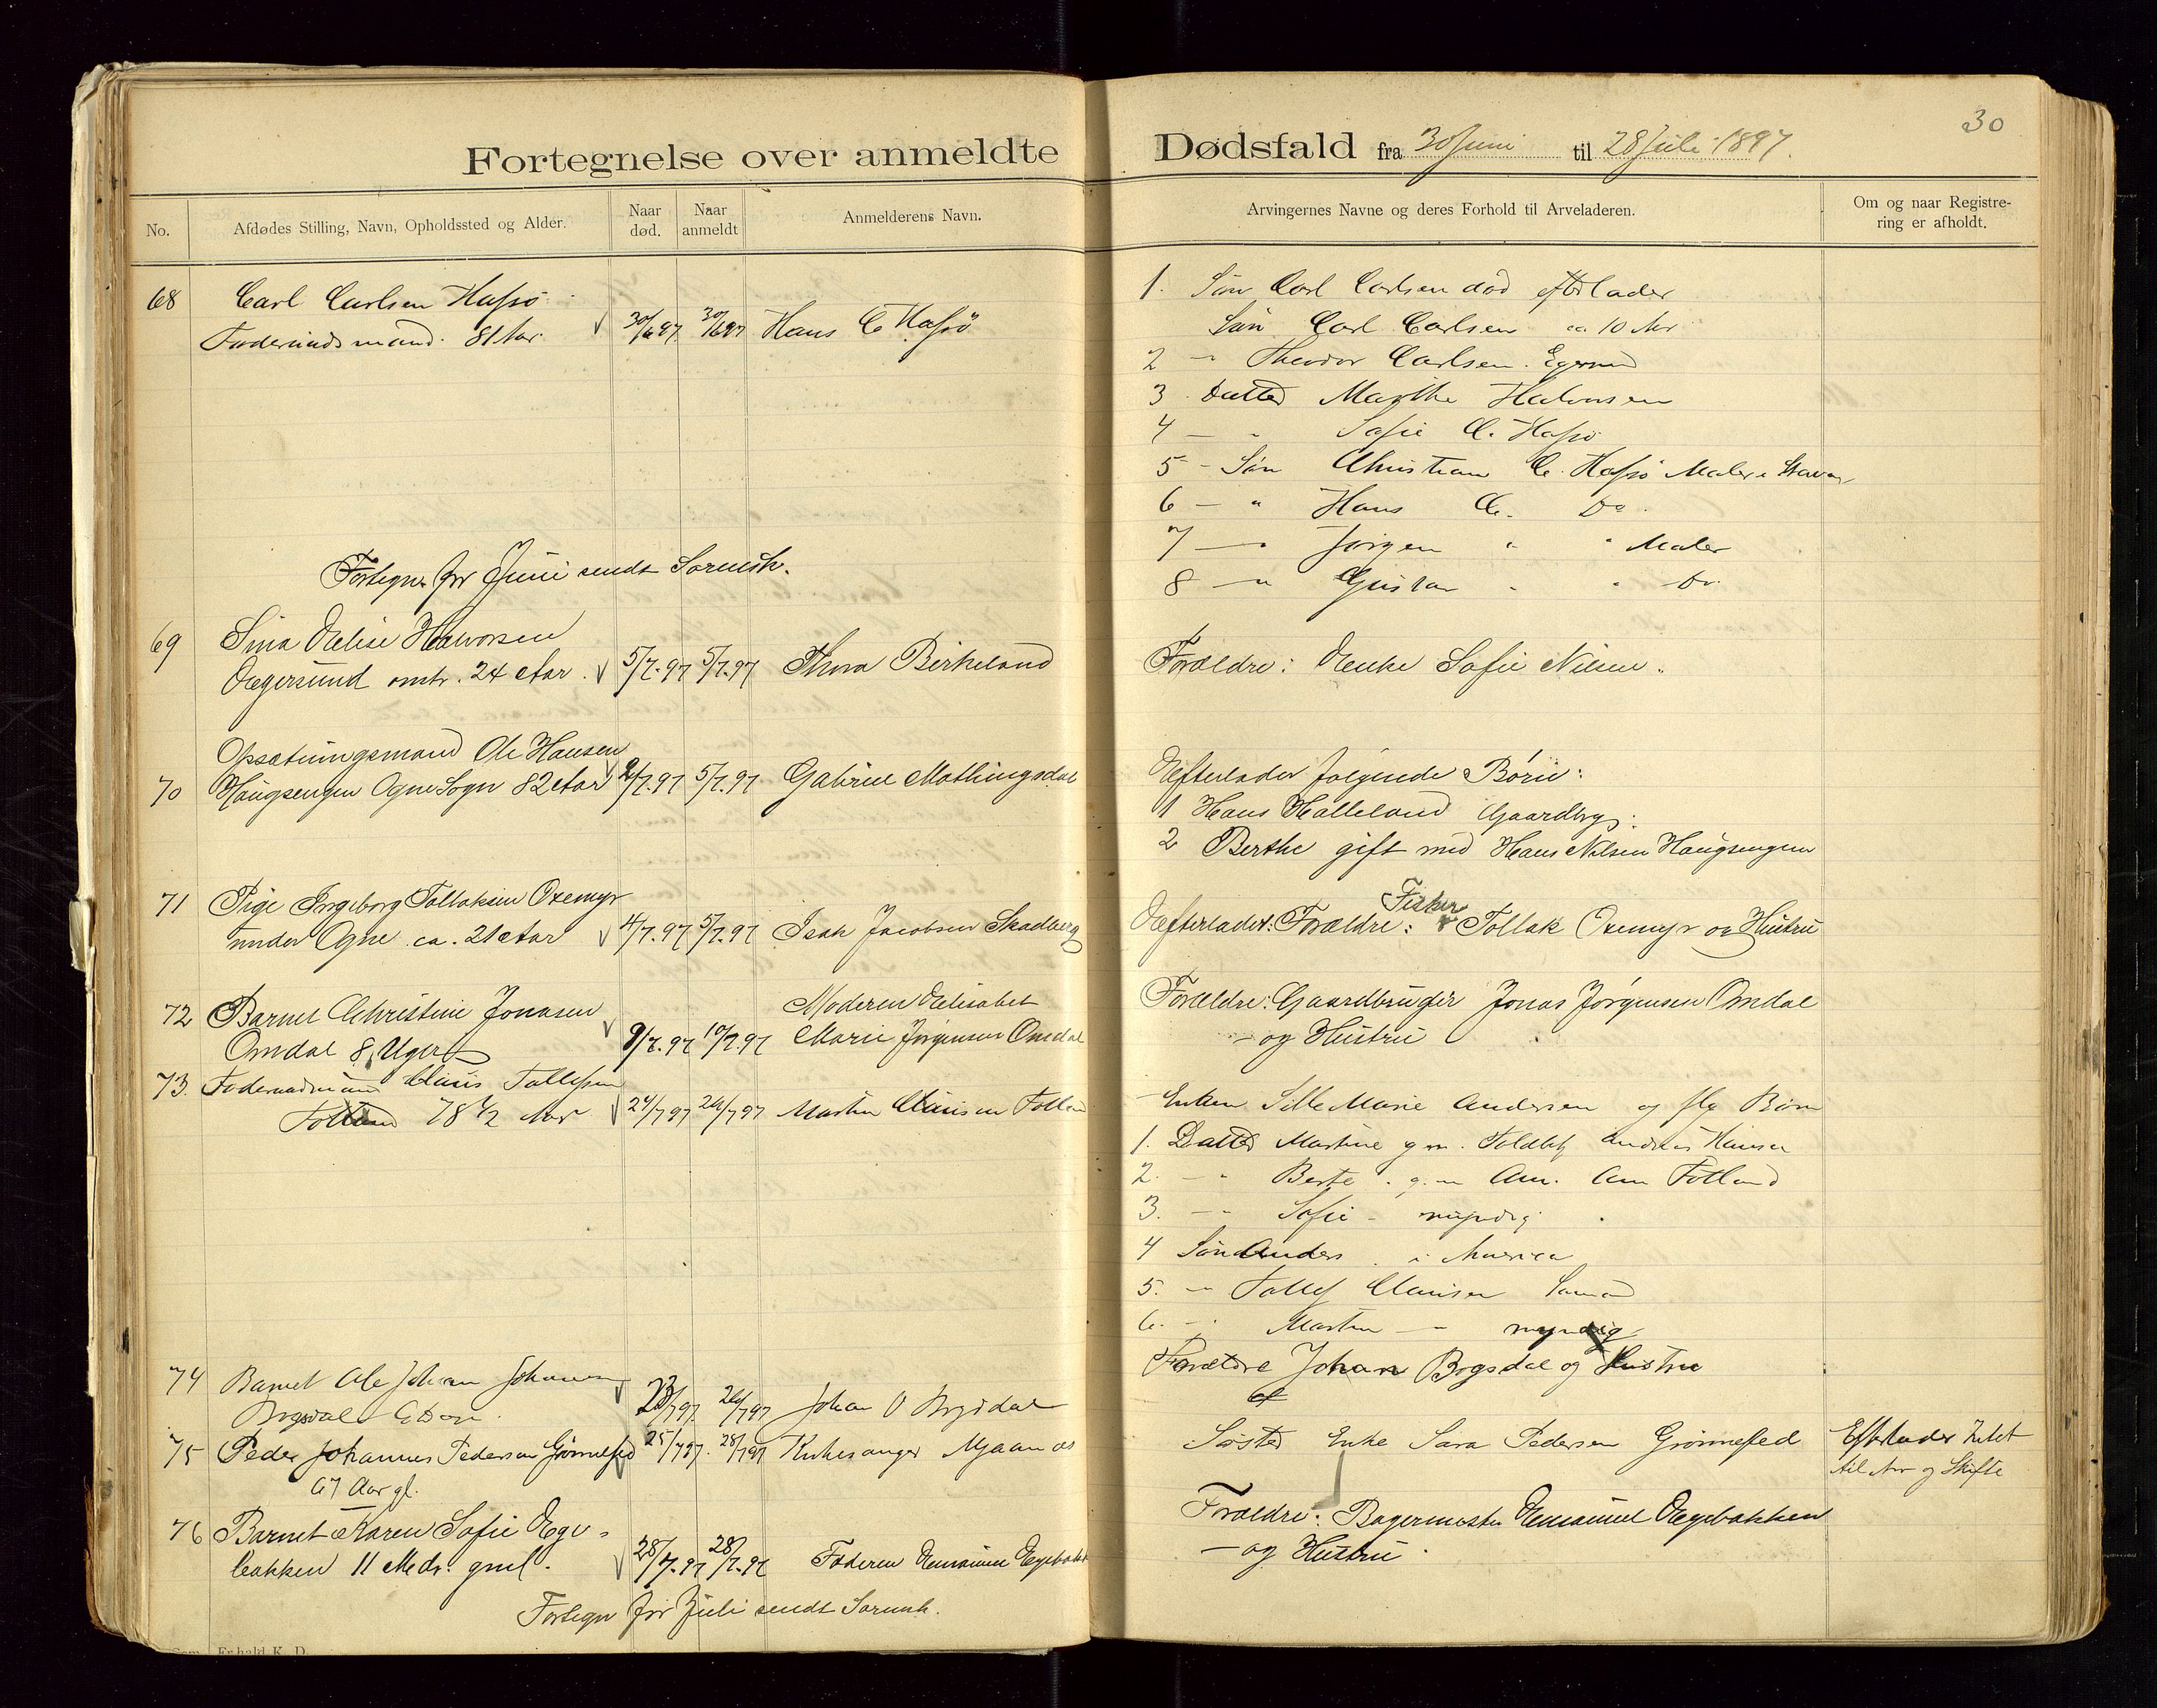 30
Fortegnelse over anmeldte Dødsfald fra 30 Juni til 28 Juli 1897.
No.
Afdødes Stilling, Navn, Opholdssted og Alder.
Naar død.
Naar anmeldt
Anmelderens Navn.
Arvingernes Navne og deres Forhold til Arveladeren.
Om og naar Registre-
ring er afholdt.
68 Carl Carlsen Hafsö
81 Aar. 30/6 97. 30/6 97 Hans C Hafsö
1. Søn Carl Carlsen død efterlader
Søn Carl Carlsen ca 10 Aar
2 " Theodor Carlsen. Egersund
3 Datter Marthe Halvorsen
4 — " Sofie C. Hafsö
5 - Søn Christian C. Hafsö Maler i Stavan
6 — " Hans C. Do.
7 — " Jörgen " " Maler
8 — " Gustav " " Do.
Fortegn. for Juni sendt Sorensk.
69 Sina Elise Halvorsen
Egersund omtr. 24 Aar. 5/7.97 5/7.97 Thora Birkeland
Forældre: Enke Sofie Nilsen.
Opsætningsmand Ole Hansen
70 Haugsengen Ogne Sogn 82 Aar 2/7.97 5/7.97 Gabriel Mothingsdal
Efterlader følgende Børn:
1 Hans Halleland Gaardbrg.
2 Berthe gift med Hans Nilsen Haugsengen
71 Pige Ingeborg Tollaksen Oxemyr
under Ogne ca. 21 Aar 4/7.97 5/7.97 Isak Jacobsen Skadberg
Efterlader: Forældre: Fisker Tollak Oxemyr og Hustru
72 Barnet Christine Jonasen
Omdal 8 Uger 9/7.97 10/7.97 Moderen Elisabet
Marie Jörgensen Omdal
Forældre: Gaardbruger Jonas Jørgensen Omdal
— og Hustru
73. Claus Tollefsen
Fotland 78 1/2 Aar 24/7 97 26/7 97 Martin Clausen Fotland
Enken Sille Marie Andersen og flg Børn
1. Datter Martine g m. Toldbtj Andreas Hansen
2. — " Berte g. m Am. Fotland
3. — " Sofie - myndig
4 Søn Anders i America
5. — " Tollef Clausen
6. — " Martin — " myndig
74 Barnet Ole Johan Johansen
Bogsdal 23/7 97 26/7 97 Johan O Bogsdal
Forældre Johan Bogsdal og Hustru
75 Peder Johannes Pedersen Grønnefled 25/7 97. 28/7 97 Kirkesanger Mjaanæs
67 Aar gl.
Søster Enke Sara Pedersen Grønnefled
Efterlader Intet
til Arv og Skifte
76 Barnet Karen Sofie Ege-
bakken 11 Mdr. gml. 28/7.97 28/7.97 Faderen Emanuel Egebakken
Forældre: Bagermester Emanuel Egebakken
— og Hustru
Fortegn for Juli sendt Sorensk.